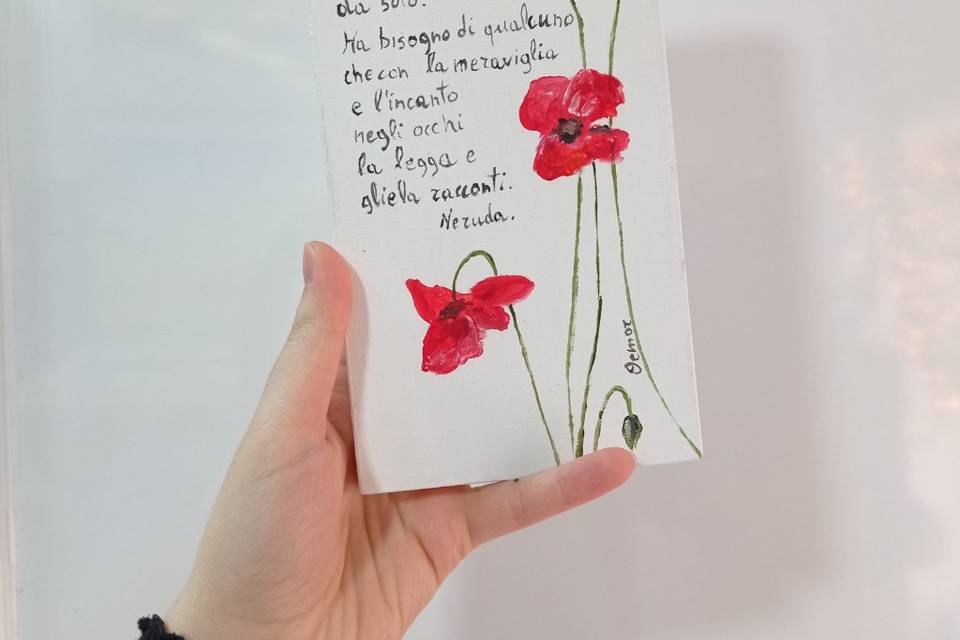 da solo.
Ha bisogno di qualcuno
che con la meraviglia
e l'incanto
negli occhi
la legga e
gliela racconti.
Neruda.
Oemor